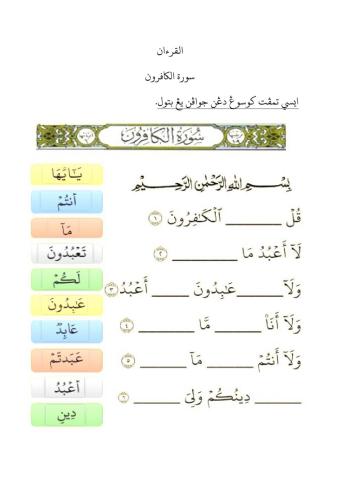 القرءان
سورة الكافرون
ايسي تمڤت كوسوڠ دڠن جواڤن يڠ بتول.
سُورَةُ الْكَافِرُونَ
بِسْمِ اللَّهِ الرَّحْمَٰنِ الرَّحِيمِ
قُلْ ________ ٱلْكَٰفِرُونَ ١
لَآ أَعْبُدُ مَا __________ ٢
وَلَآ _______ عَٰبِدُونَ ______ أَعْبُدُ ٣
وَلَآ أَنَا۠ _______ مَّا ______ ٤
وَلَآ أَنتُمْ _______ مَآ ______ ٥
_______ دِينُكُمْ وَلِىَ ______ ٦
يَٰٓأَيُّهَا
أَنتُمْ
مَآ
تَعْبُدُونَ
لَكُمْ
عَٰبِدُونَ
عَابِدٌ
عَبَدتُّمْ
أَعْبُدُ
دِينِ